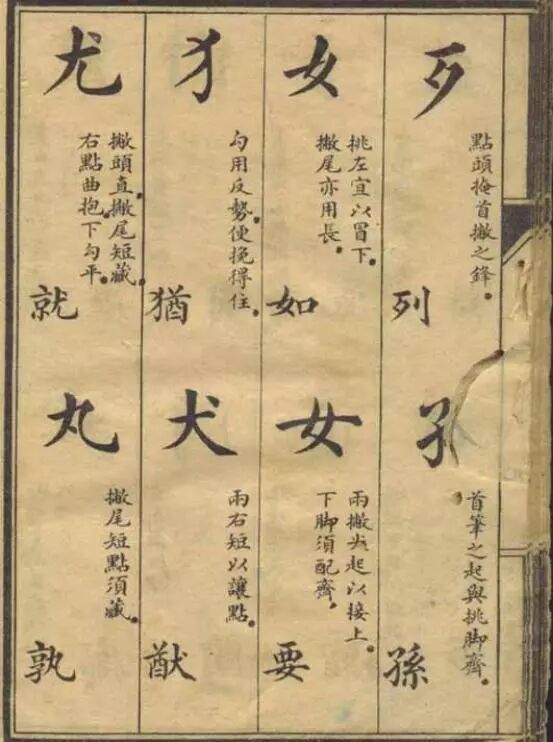 歹
點頭掩首撇之鋒。
列
首筆之起與挑脚齊。
孫
女
挑左宜以冒下。
撇尾亦用長。
如
女
兩撇尖起以接上。
下脚須配齊。
要
犭
勾用反勢便挽得住。
猶
犬
兩右短以讓點。
猷
尤
撇頭直。撇尾短藏。
右點曲抱。下勾平。
就
丸
撇尾短點須藏。
孰